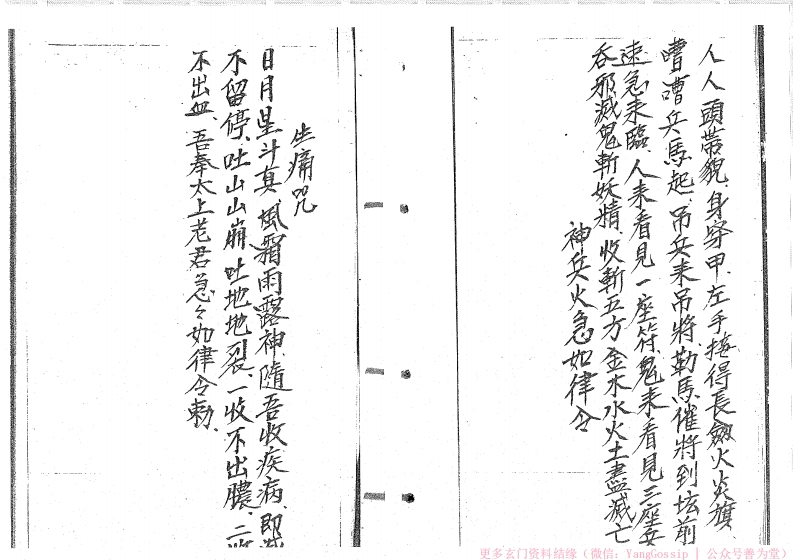 人人頭帶貌、身穿甲、左手接得長劍火炎旗、
嘈嘈兵馬起、吊兵来吊將、勒馬催將到坛前
速急来臨、人来看見一座符、鬼来看見三座兵
吞邪滅鬼斬妖精、收斬五方金木水火土盡滅亡
神兵火急如律令
生痛咒
日月星斗真、風霜雨露神、隨吾收疾病、即
不留停、吐山山崩、吐地地裂、一收不出膿、二
不出血、吾奉太上老君急々如律令勅、
更多玄门资料结缘（微信：YangGossip | 公众号善为堂）